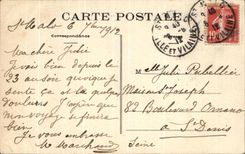 CARTE POSTALE
St Malo 6 1912
Correspondance
Ma chère Julie
Je vais bien depuis le
23 au soir quoique
sente ça et là quelques
douleurs J'espère que
mon voyage se passera
bien
Je vous embrasse
Me Marchand
Melle Julie
Maison St Joseph
82 Boulevard Ornano
à St Denis
Seine
ILLE ET VILAINE